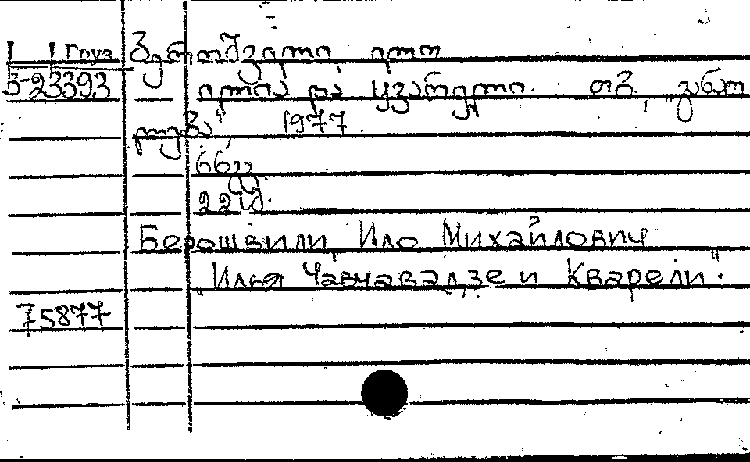 Груз. ბეროშვილი, ილო
3-23393 ილია და ყვარელი. თბ., „განთ
ლება“, 1977
66
22
Берошвили, Ило Михайлович
„Илья Чавчавадзе и Кварели“.
75877